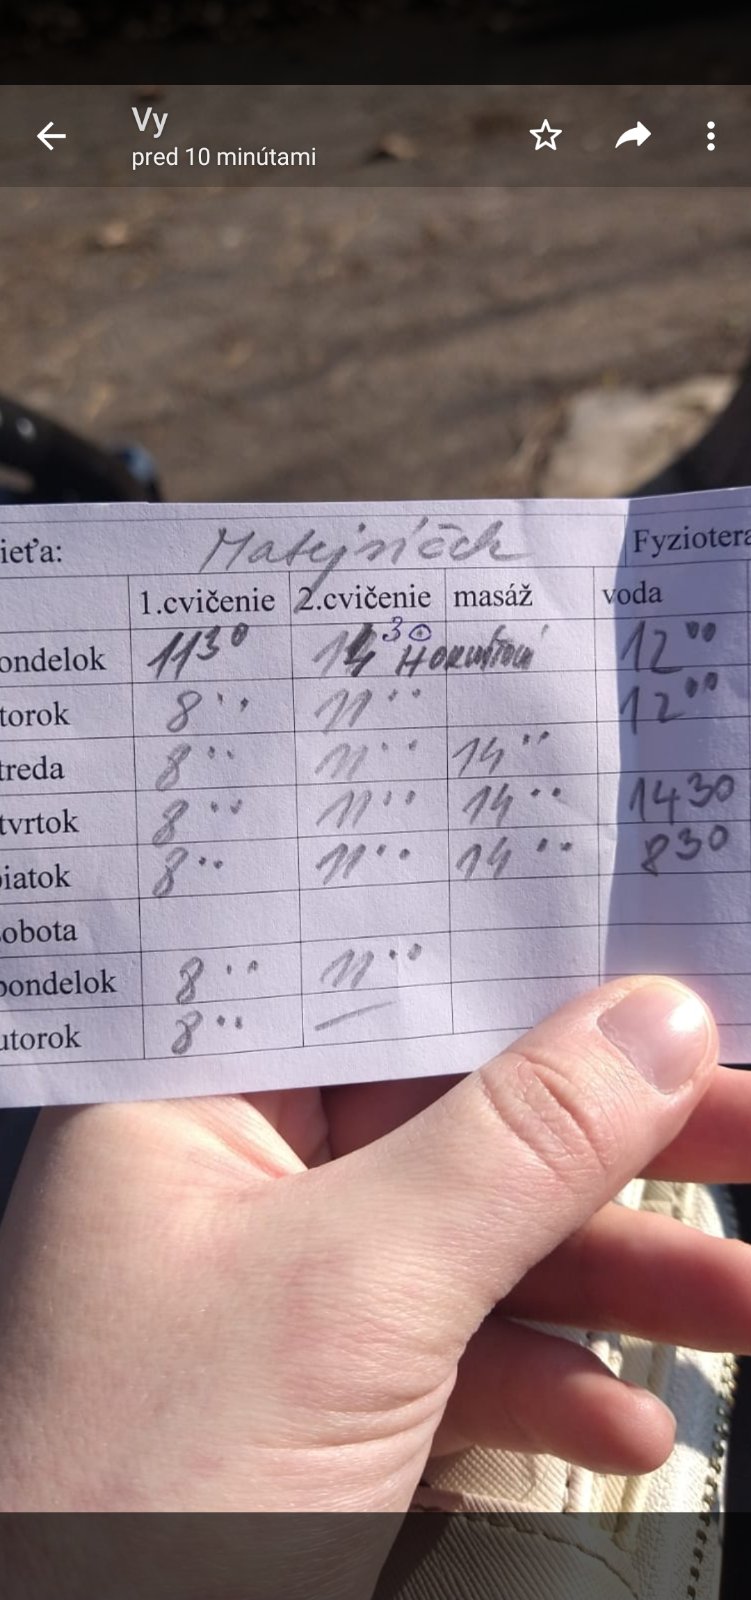 Vy
pred 10 minútami
ieťa: Matejníček Fyziotera
1.cvičenie 2.cvičenie masáž voda
ondelok 11³⁰ 14³⁰ 12⁰⁰
torok 8⁰⁰ 11⁰⁰ 12⁰⁰
treda 8⁰⁰ 11⁰⁰ 14⁰⁰
tvrtok 8⁰⁰ 11⁰⁰ 14⁰⁰ 14³⁰
iatok 8⁰⁰ 11⁰⁰ 14⁰⁰ 8³⁰
obota
pondelok 8⁰⁰ 11⁰⁰
utorok 8⁰⁰ —